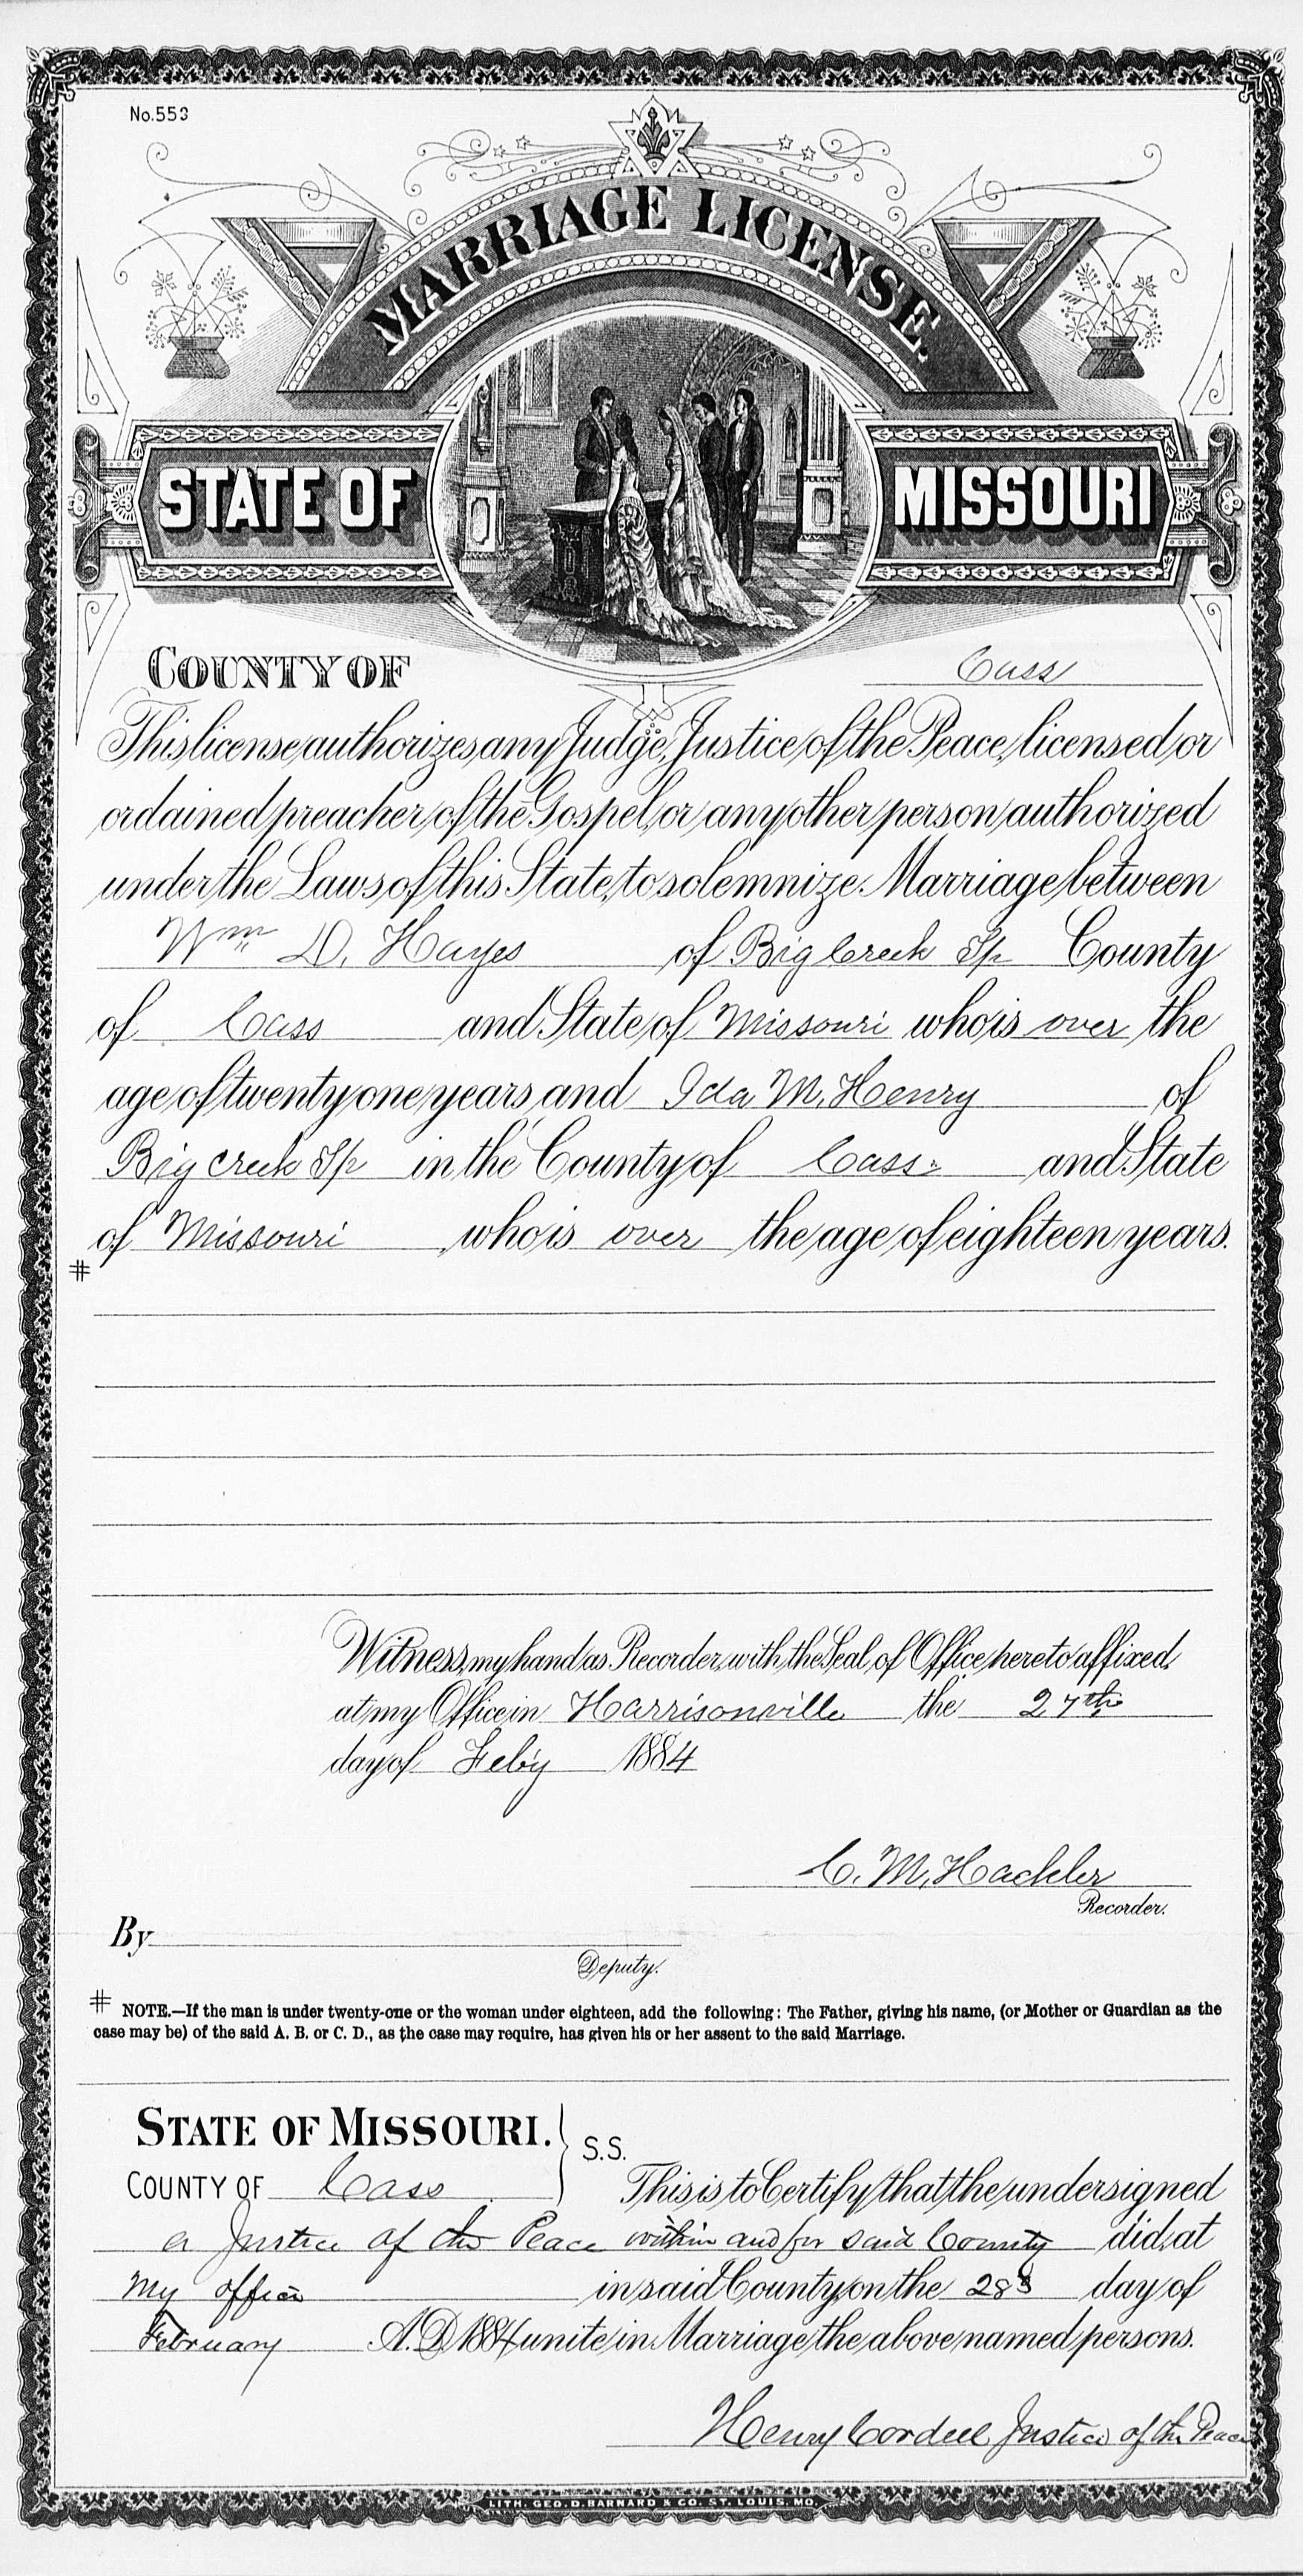 No.553
MARRIAGE LICENSE.
STATE OF MISSOURI
COUNTY OF Cass
This license authorizes any Judge, Justice of the Peace, licensed or
ordained preacher of the Gospel, or any other person authorized
under the Laws of this State, to solemnize Marriage between
Wm D. Hayes of Big Creek Tp County
of Cass and State of Missouri who is over the
age of twenty one years and Ida M. Henry of
Big creek Tp in the County of Cass and State
of Missouri who is over the age of eighteen years.
#
Witness my hand as Recorder, with the Seal of Office hereto affixed,
at my Office in Harrisonville the 27th
day of Feby 1884
C. M. Hackler
Recorder.
By
Deputy.
# NOTE.—If the man is under twenty-one or the woman under eighteen, add the following: The Father, giving his name, (or Mother or Guardian as the
case may be) of the said A. B. or C. D., as the case may require, has given his or her assent to the said Marriage.
STATE OF MISSOURI. } S.S.
COUNTY OF Cass This is to Certify that the undersigned
a Justice of the Peace within and for said County did, at
my office in said County, on the 28 day of
February A.D. 1884 unite in Marriage the above named persons.
Henry Cordell Justice of the Peace
LITH. GEO. D. BARNARD & CO. ST. LOUIS, MO.